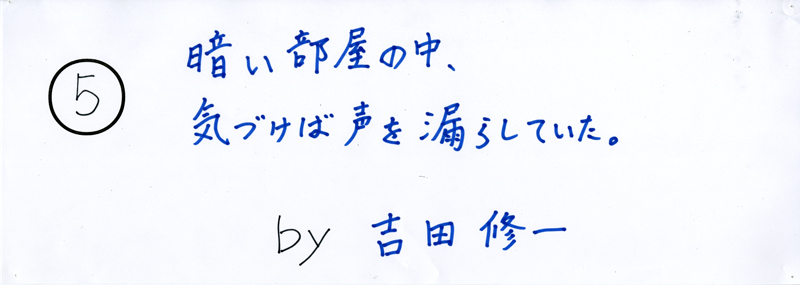 ⑤
暗い部屋の中、
気づけば声を漏らしていた。
by 吉田修一